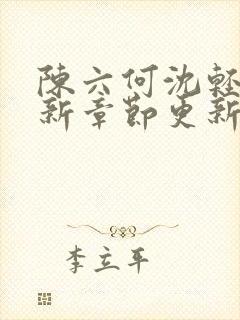 陳六何沈輕
新章節更新
李立平